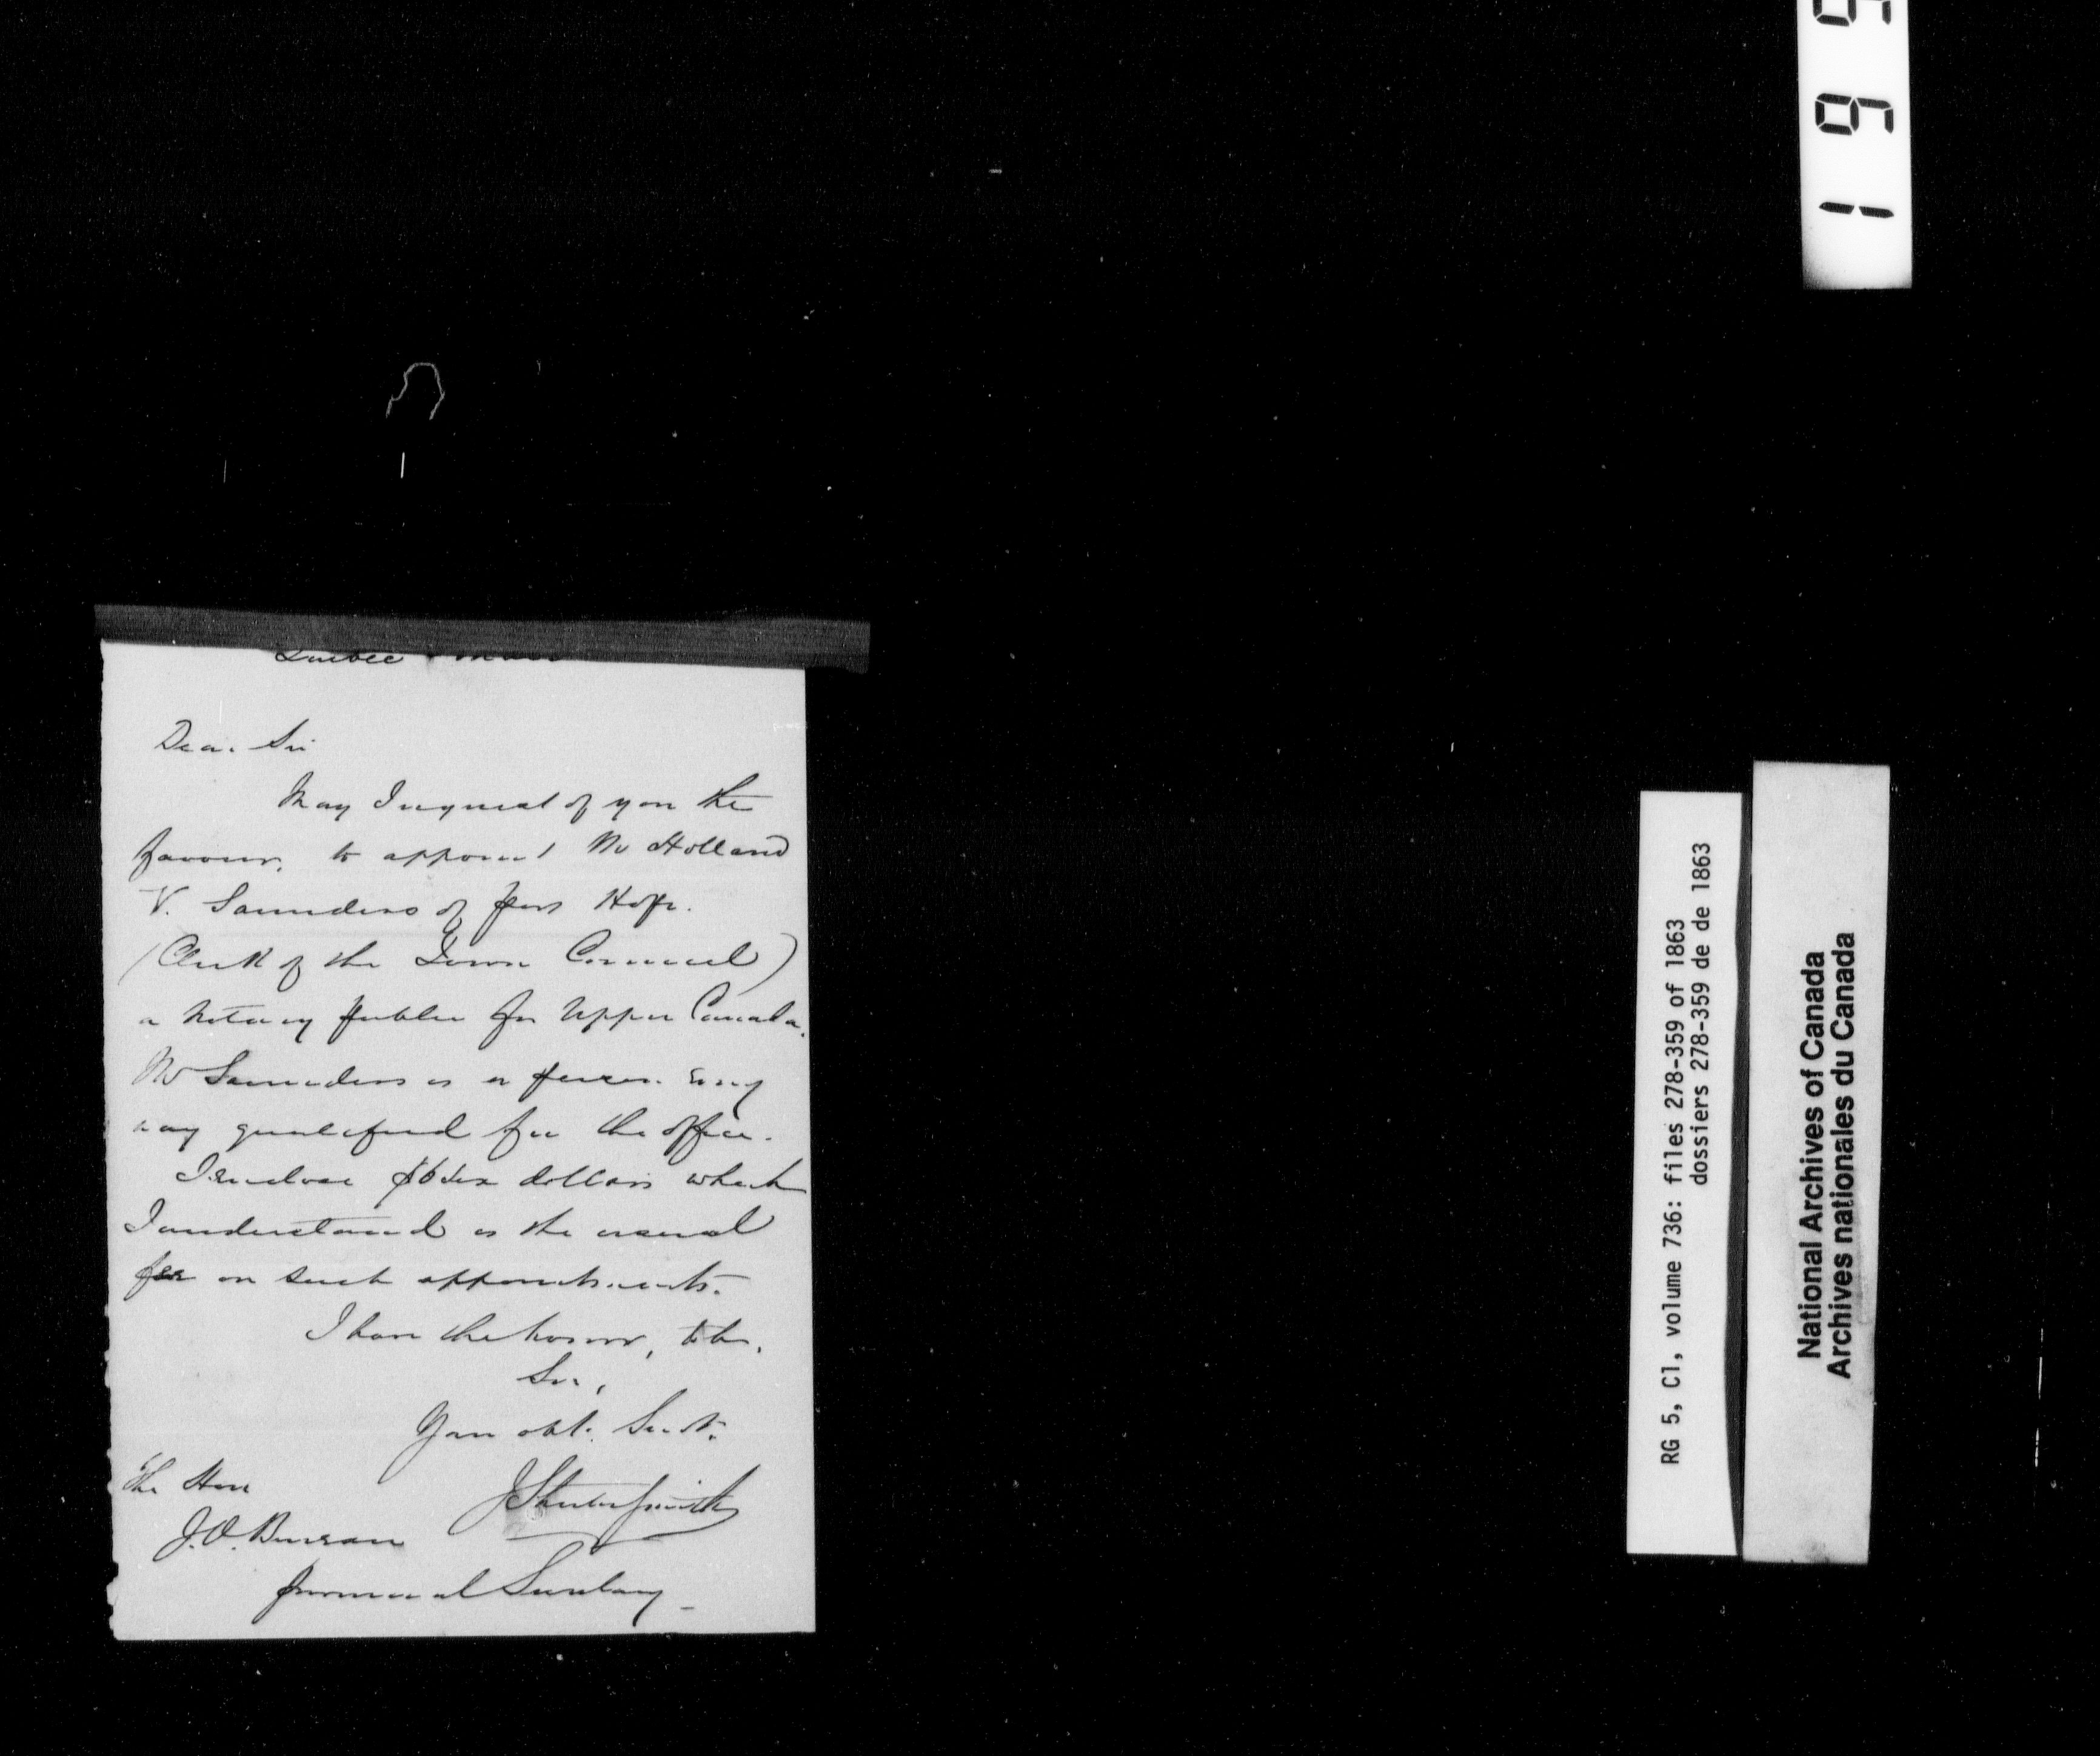 Quebec
Dear Sir
May I request of you the
favour, to appoint Mr Holland
V. Saunders of Port Hope.
(Clerk of the Town Council)
a Notary Public for Upper Canada.
Mr Saunders is a person every
way qualified for the office.
I enclose $6 six dollars which
I understand is the usual
fee on such appointments.
I have the honor, to be,
Sir,
Your obt. Servt.
J Shuter Smith
The Hon
J.O. Bureau
Provincial Secretary
RG 5, C1, volume 736: files 278-359 of 1863
dossiers 278-359 de de 1863
National Archives of Canada
Archives nationales du Canada
1 6